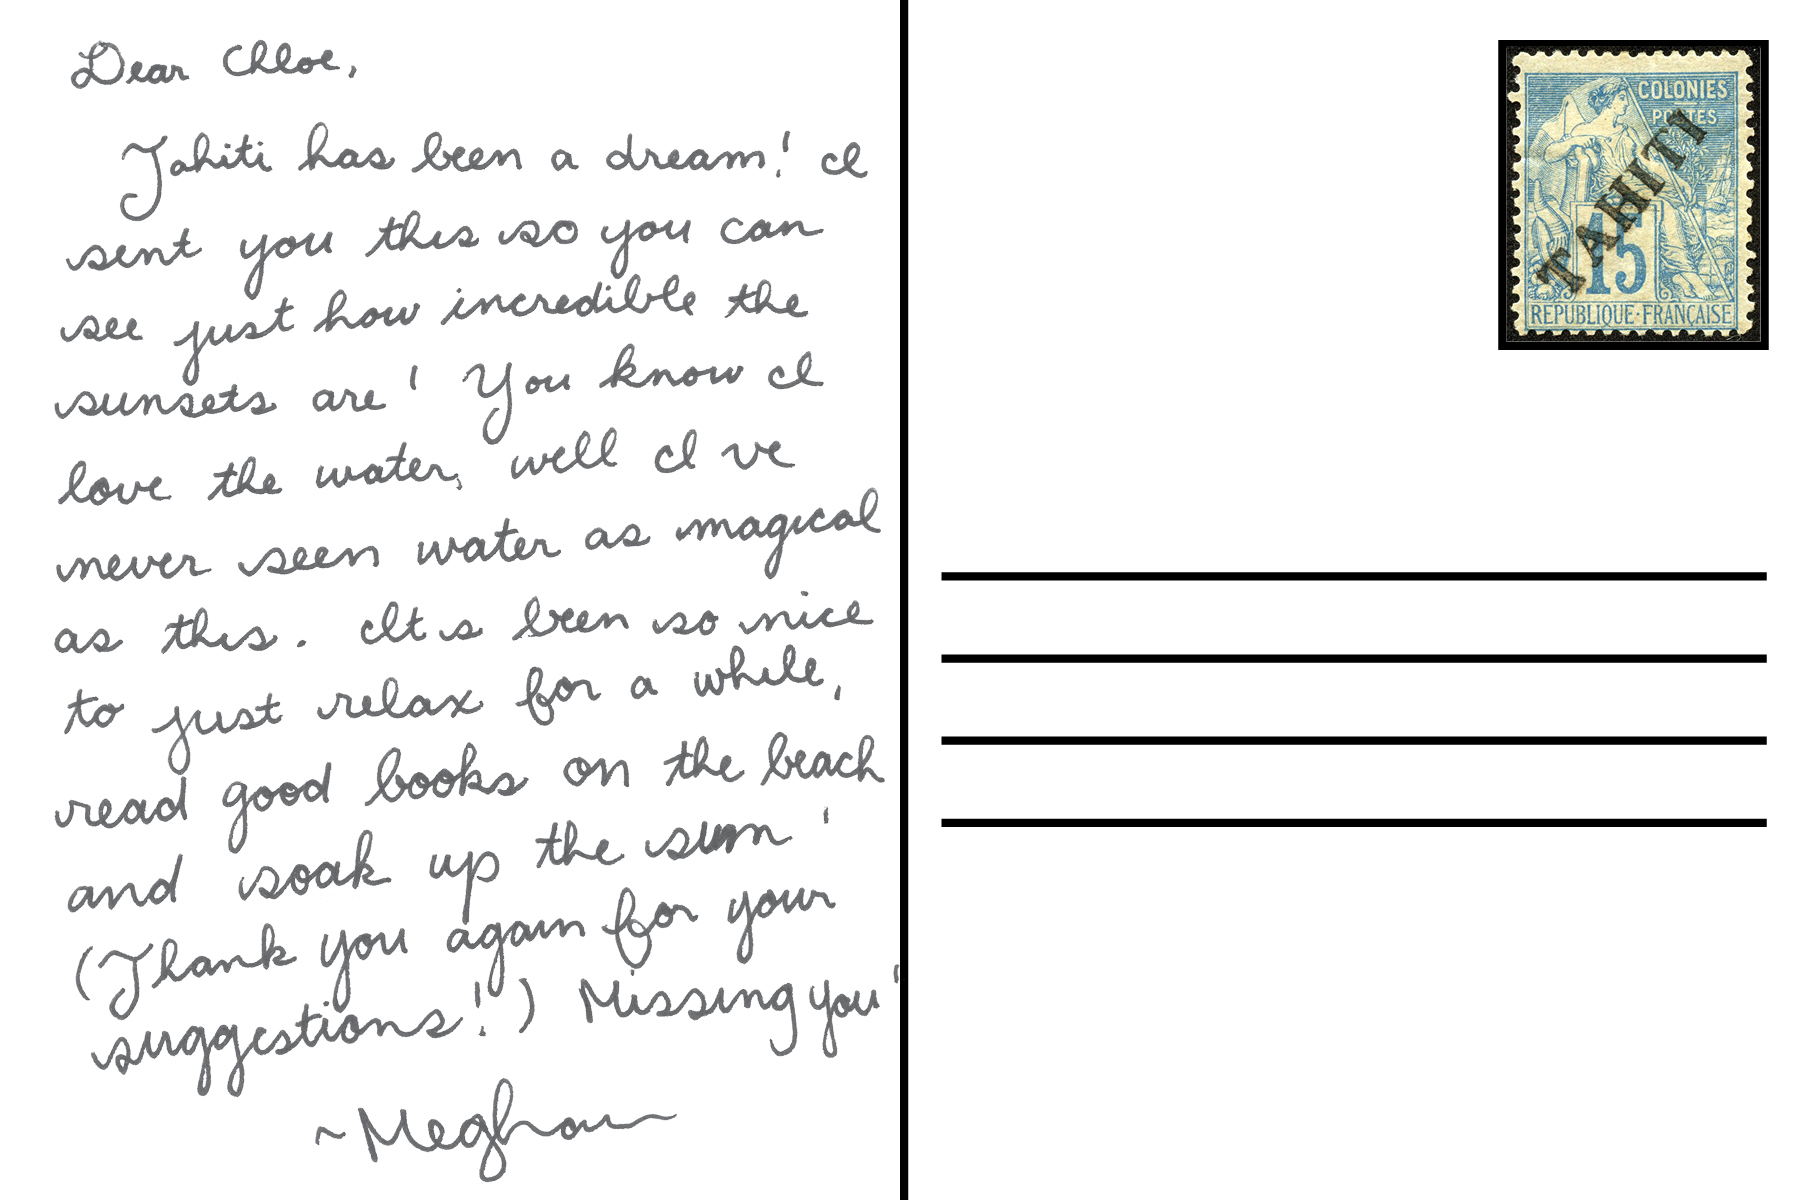 Dear Chloe,
Tahiti has been a dream! I
sent you this so you can
see just how incredible the
sunsets are! You know I
love the water, well I've
never seen water as magical
as this. It's been so nice
to just relax for a while,
read good books on the beach
and soak up the sun!
(Thank you again for your
suggestions!) Missing you!
~Meghan
COLONIES
POSTES
TAHITI
15
REPUBLIQUE·FRANÇAISE